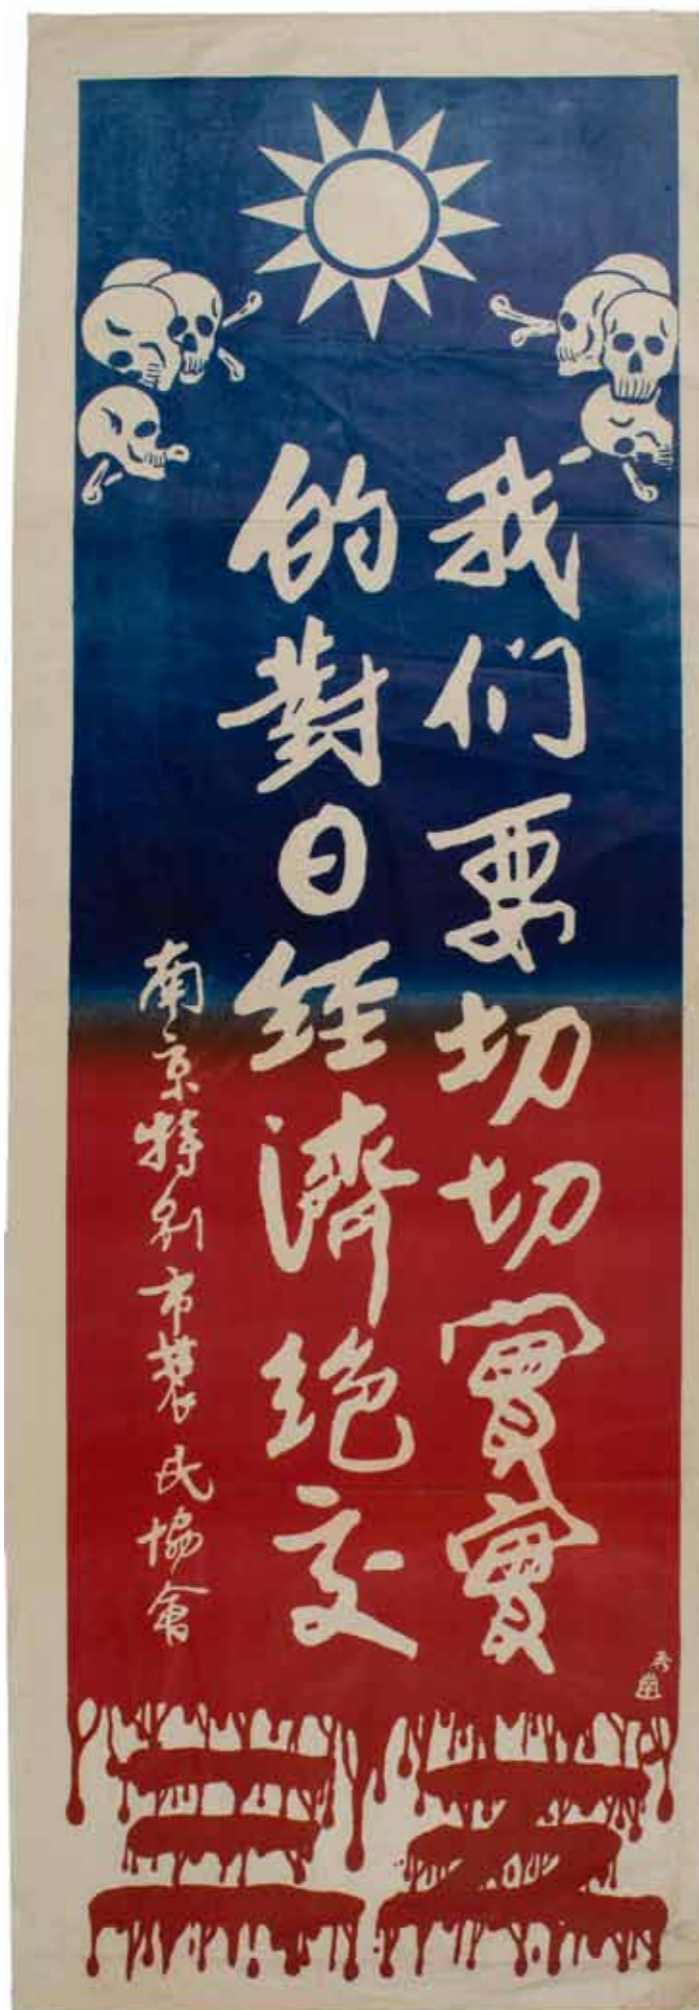 我们要切切實實
的對日經濟絕交
南京特别市農民協會
五三